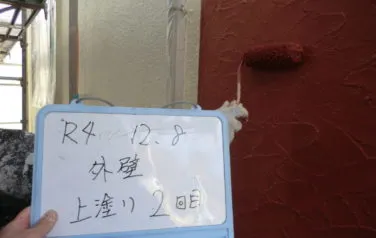 R4 12.8
外壁
上塗り 2回目